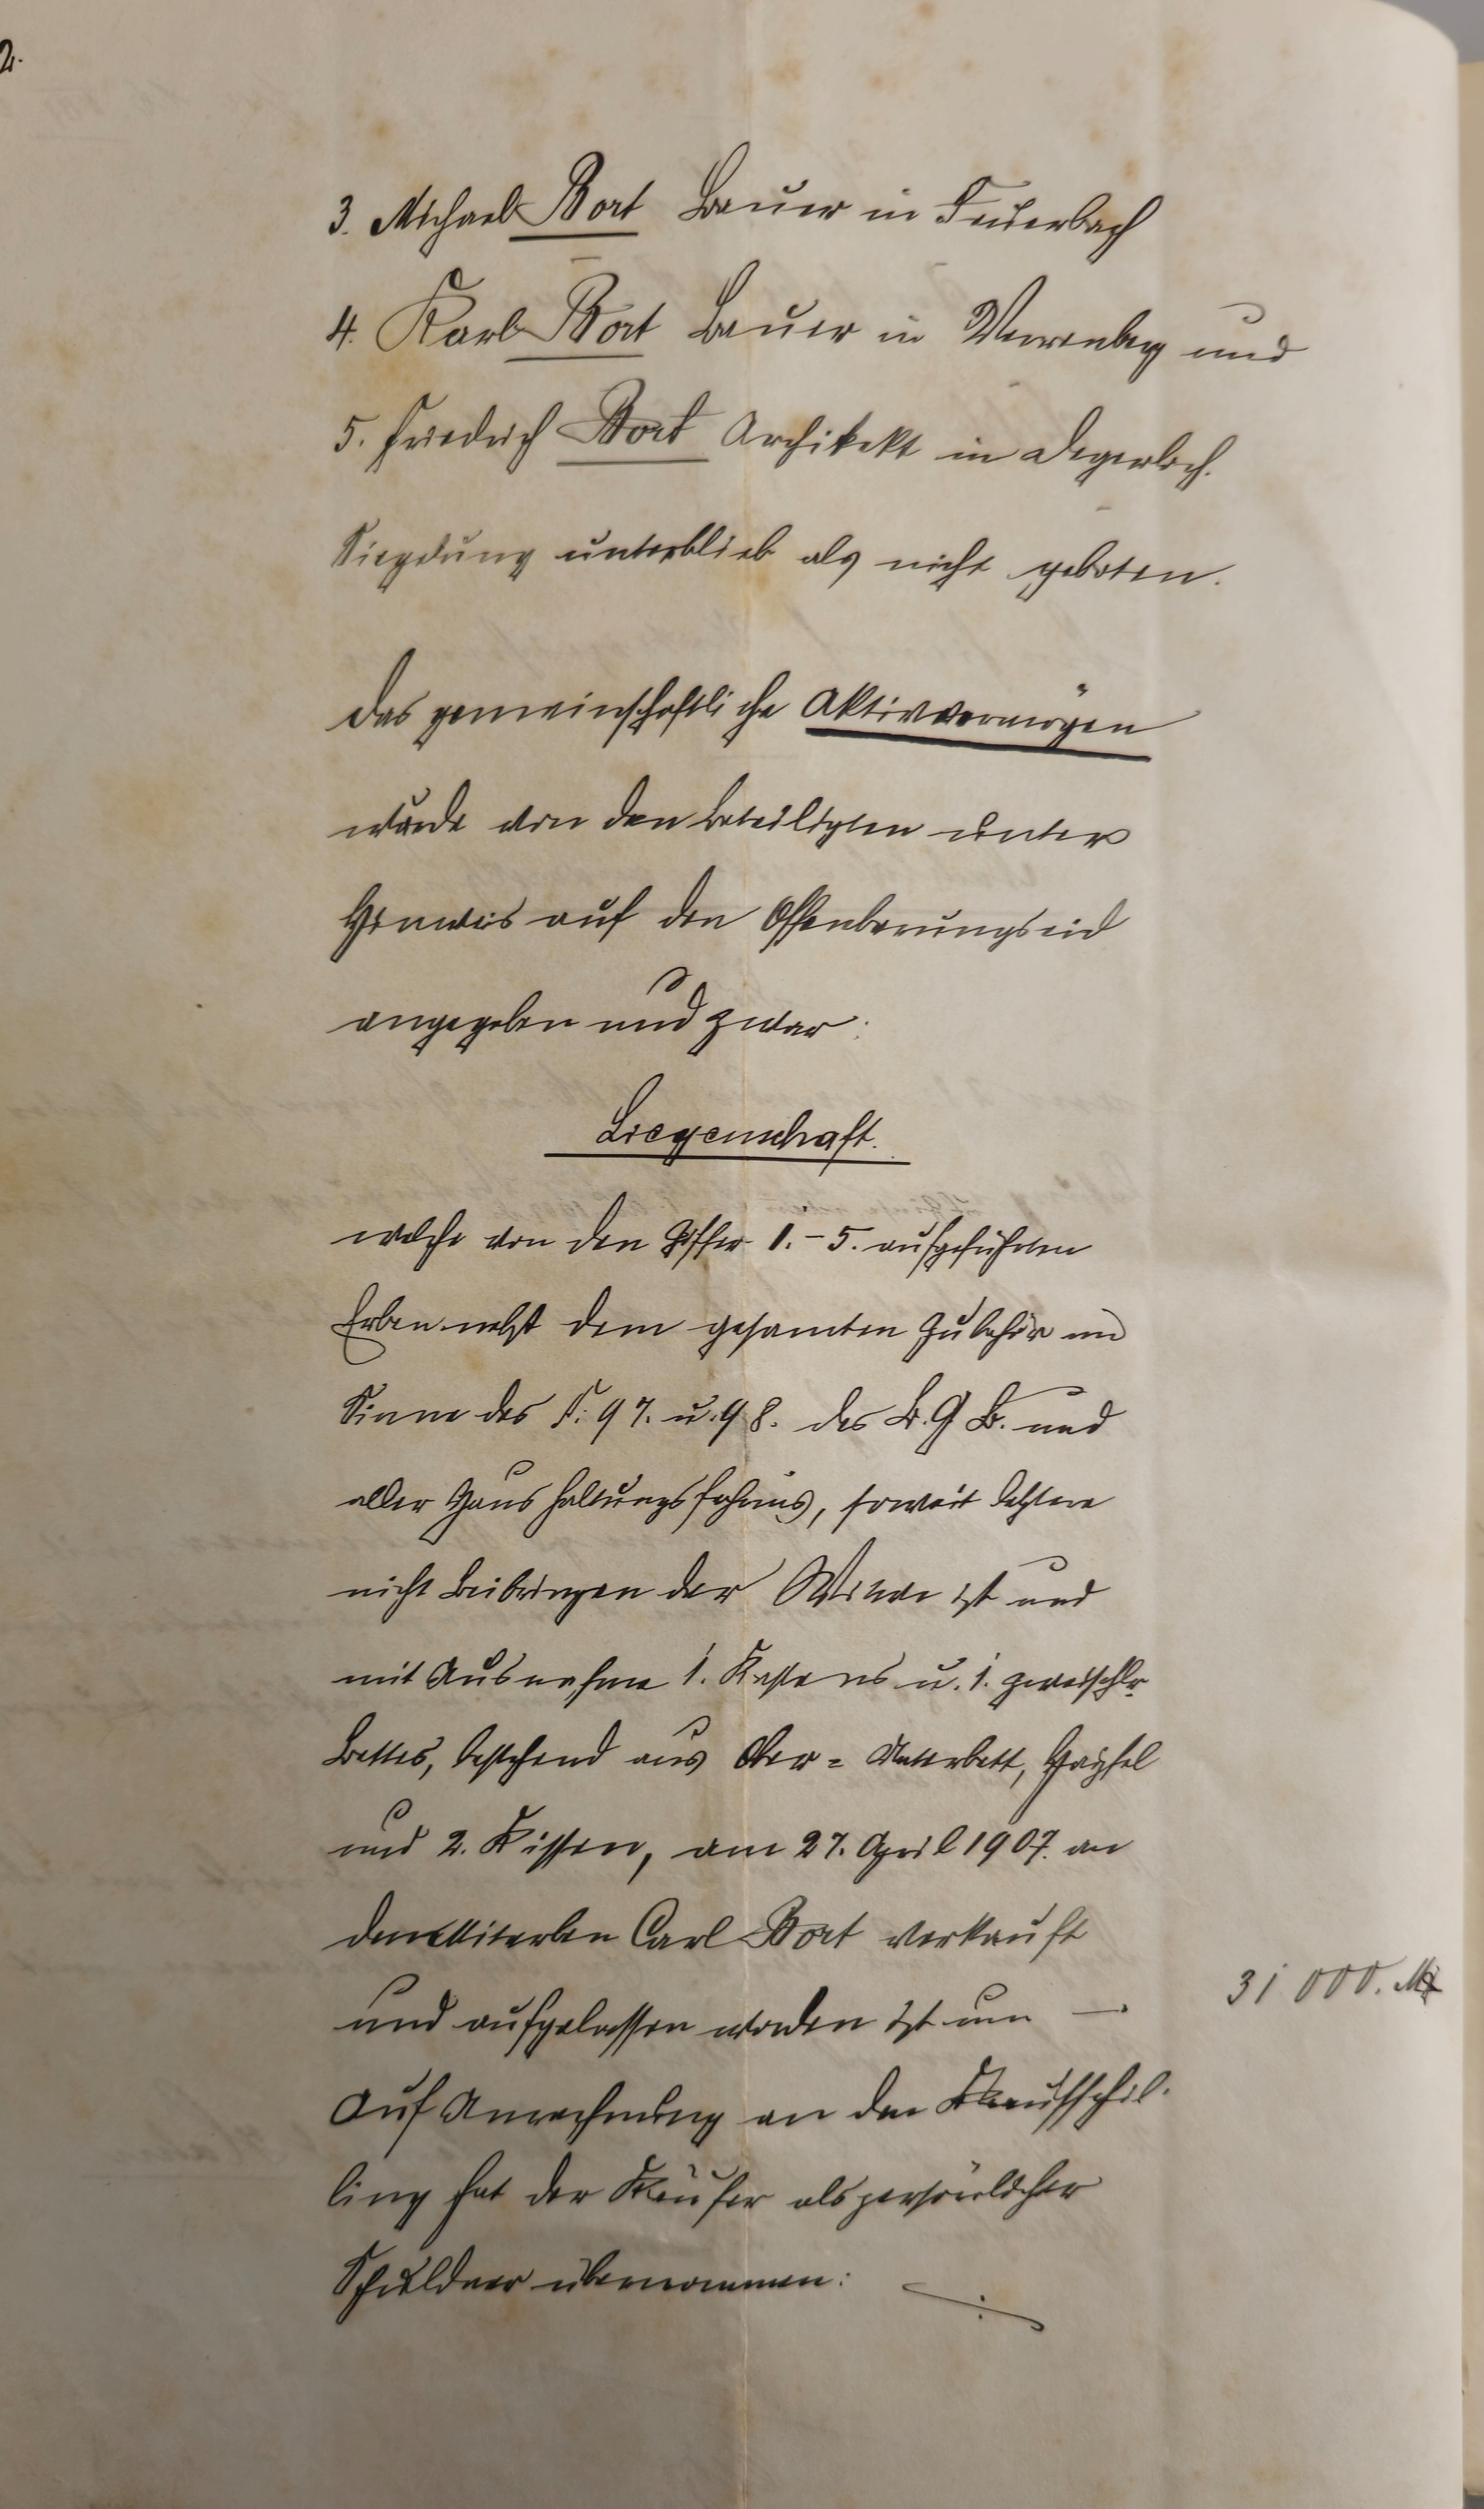 2.
3. Michael Bort Bauer in Feuerbach
4. Karl Bort Bauer in Verrenberg und
5. Friedrich Bort Architekt in Degerloch.
Sieglung unterblieb als nicht geboten.
Das gemeinschaftliche Aktivvermögen
wurde von den Beteiligten unter
Hinweis auf den Offenbarungseid
angegeben und zwar:
Liegenschaft.
welche von den Ziffer 1.-5. aufgeführten
Erben nebst dem gesamten Zubehör im
Sinne des §. 97. u. 98. des B.G.B. und
aller Haushaltungsfahrnis, soweit letztere
nicht Beibringen der Witwe ist und
mit Ausnahme 1. Kastens u. 1. zweischlr.
Bettes, bestehend aus Ober= Unterbett, Haipfel
und 2. Kissen, am 27. April 1907. an
den Miterben Carl Bort verkauft
und aufgelassen worden ist um —. 31 000. M
Auf Anrechnung an den Kaufschil-
ling hat der Käufer als persönlicher
Schuldner übernommen: